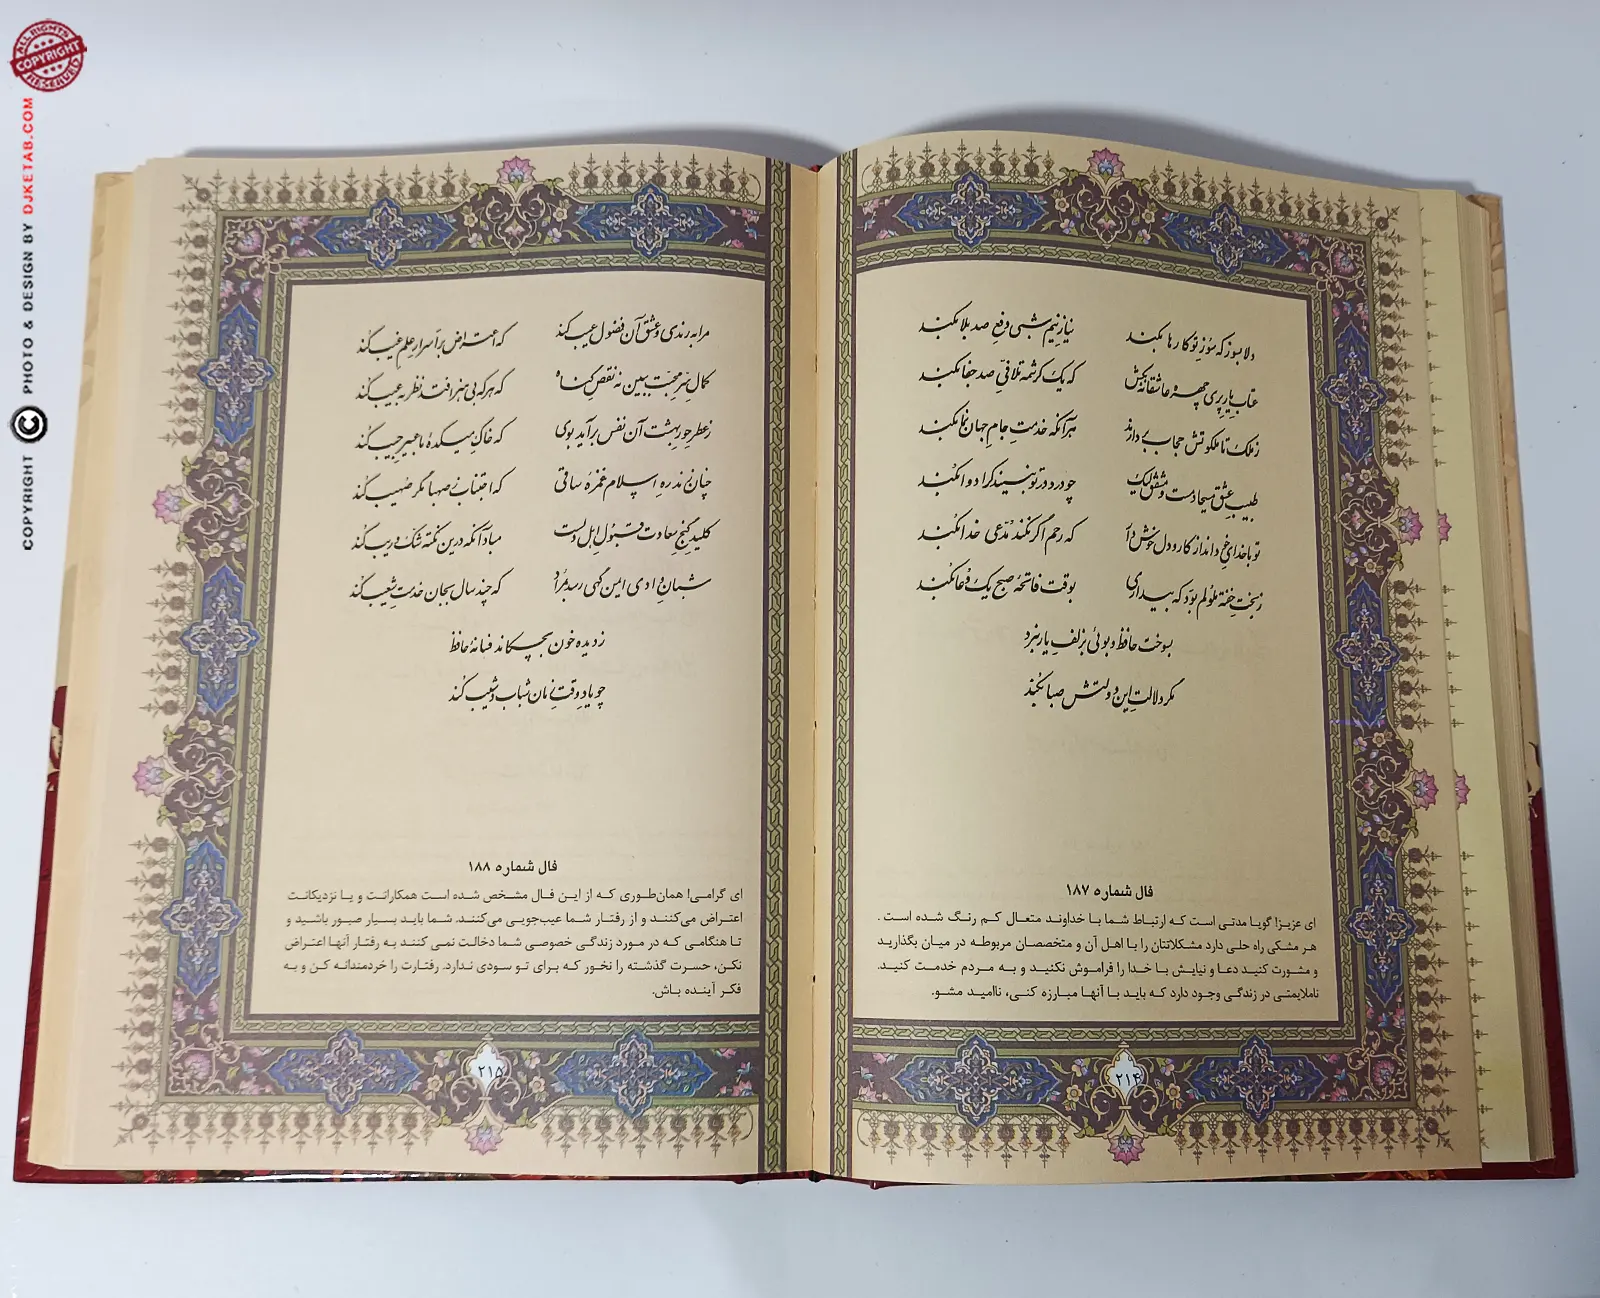 ALL RIGHTS
COPYRIGHT
RESERVED
COPYRIGHT © PHOTO & DESIGN BY DJKETAB.COM
دلا بسوز که سوز تو کارها بکند نیاز نیم‌شبی دفع صد بلا بکند
عتاب یار پری چهره عاشقانه بکش که یک کرشمه تلافی صد جفا بکند
ز ملک تا ملکوتش حجاب بردارند هرآنکه خدمت جام جهان نما بکند
طبیب عشق مسیحا دمست و مشفق لیک چو درد در تو نبیند کرا دوا بکند
تو با خدای خود انداز کار و دل خوش دار که رحم اگر نکند مدعی خدا بکند
ز بخت خفته ملولم بود که بیداری بوقت فاتحهٔ صبح یک دعا بکند
بسوخت حافظ و بوئی بزلف یار نبرد
مگر دلالت این دولتش صبا بکند
فال شماره ۱۸۷
ای عزیز! گویا مدتی است که ارتباط شما با خداوند متعال کم رنگ شده است .
هر مشکی راه حلی دارد مشکلاتتان را با اهل آن و متخصصان مربوطه در میان بگذارید
و مشورت کنید دعا و نیایش با خدا را فراموش نکنید و به مردم خدمت کنید.
ناملایمتی در زندگی وجود دارد که باید با آنها مبارزه کنی، ناامید مشو.
۲۱۴
مرا به رندی و عشق آن فضول عیب کند که اعتراض بر اسرار علم غیب کند
کمال سر محبت ببین نه نقص گناه که هرکه بی هنر افتد نظر به عیب کند
ز عطر حور بهشت آن نفس برآید بوی که خاک میکدهٔ ما عبیر جیب کند
چنان زند ره اسلام غمزهٔ ساقی که اجتناب ز صهبا مگر صهیب کند
کلید گنج سعادت قبول اهل دلست مباد آنکه درین نکته شک و ریب کند
شبان وادی ایمن گهی رسد بمراد که چند سال بجان خدمت شعیب کند
ز دیده خون بچکاند فسانهٔ حافظ
چو یاد وقت زمان شباب و شیب کند
فال شماره ۱۸۸
ای گرامی! همان‌طوری که از این فال مشخص شده است همکارانت و یا نزدیکانت
اعتراض می‌کنند و از رفتار شما عیب‌جویی می‌کنند. شما باید بسیار صبور باشید و
تا هنگامی که در مورد زندگی خصوصی شما دخالت نمی کنند به رفتار آنها اعتراض
نکن، حسرت گذشته را نخور که برای تو سودی ندارد. رفتارت را خردمندانه کن و به
فکر آینده باش.
۲۱۵